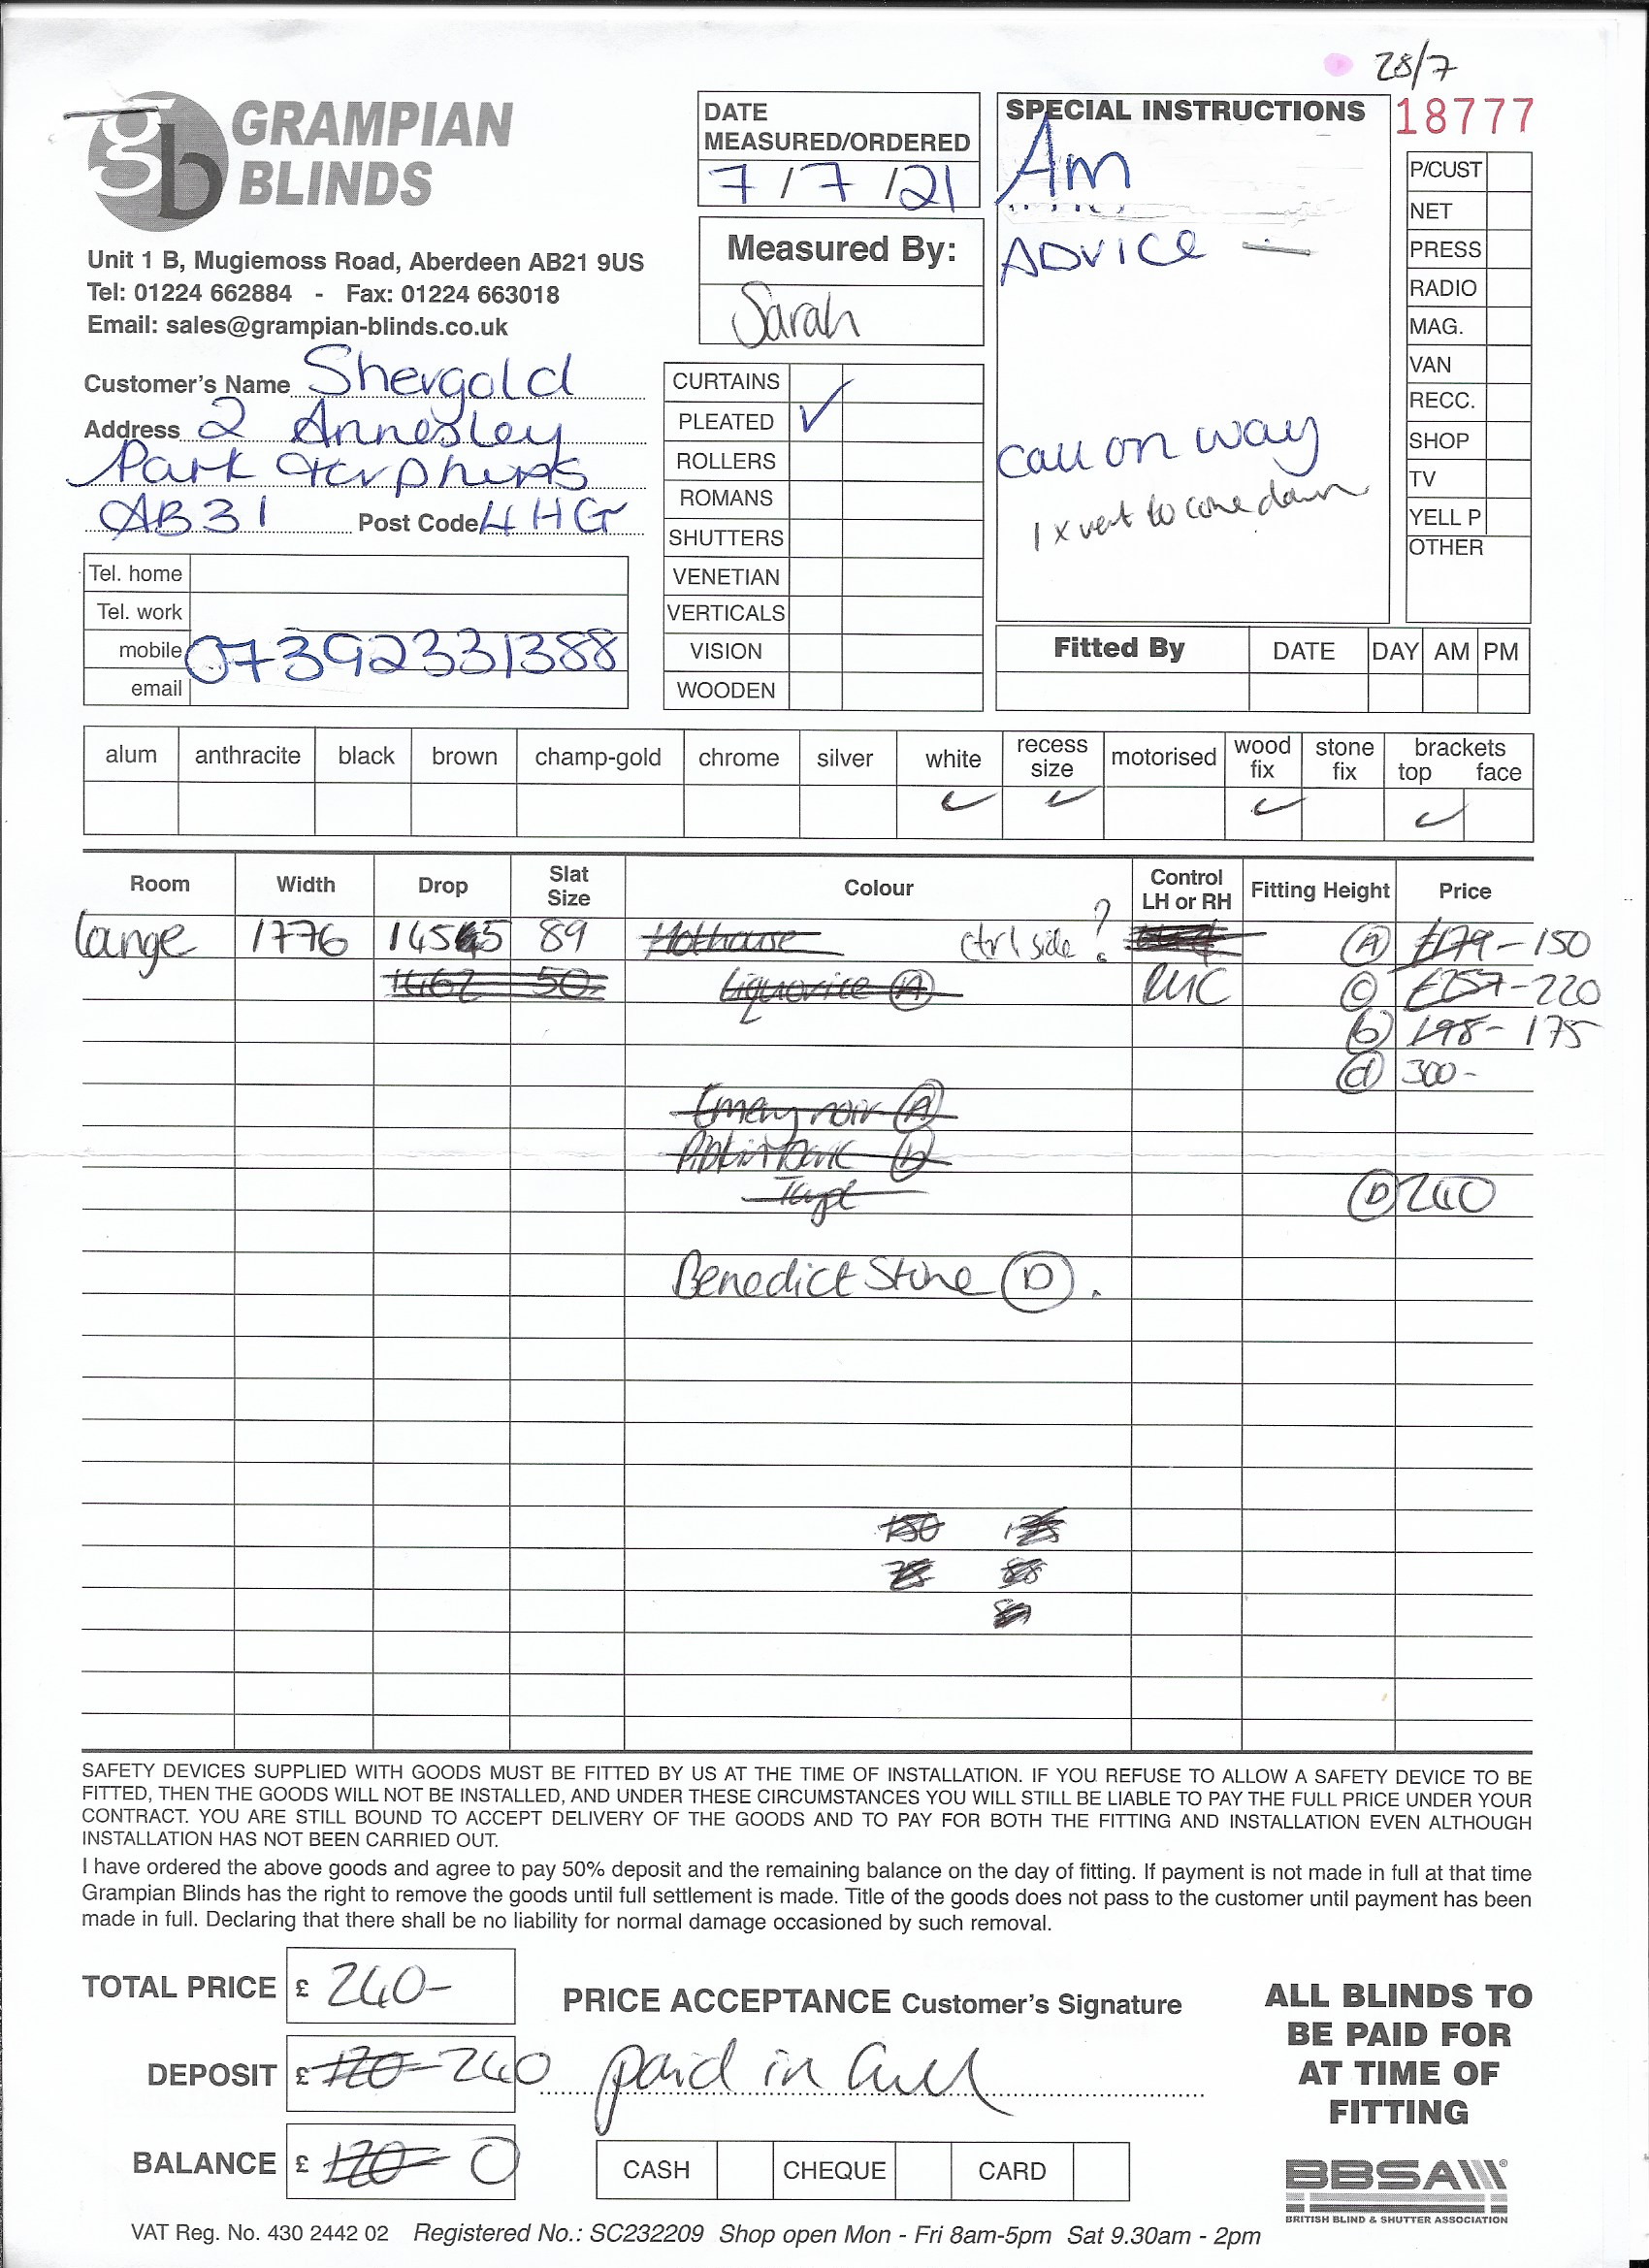 28/7
18777
gb GRAMPIAN
BLINDS
Unit 1 B, Mugiemoss Road, Aberdeen AB21 9US
Tel: 01224 662884 - Fax: 01224 663018
Email: sales@grampian-blinds.co.uk
Customer's Name Shergold
Address 2 Annesley
Park Torphins
AB31 Post Code 4HG
Tel. home
Tel. work
mobile 07392331388
email
DATE
MEASURED/ORDERED
7/7/21
Measured By:
Sarah
CURTAINS
PLEATED ✓
ROLLERS
ROMANS
SHUTTERS
VENETIAN
VERTICALS
VISION
WOODEN
SPECIAL INSTRUCTIONS
Am
ADVICE —
Call on way
1 x vert to come down
P/CUST
NET
PRESS
RADIO
MAG.
VAN
RECC.
SHOP
TV
YELL P
OTHER
Fitted By DATE DAY AM PM
alum anthracite black brown champ-gold chrome silver white recess size motorised wood fix stone fix brackets top face
✓ ✓ ✓ ✓
Room Width Drop Slat Size Colour Control LH or RH Fitting Height Price
Lounge 1776 1455 89 Hothouse ctrl side? (A) £179-150
1462 50 Liquorice (A) RHC (C) £257-220
(b) 198-175
(d) 300-
Emery noir (A)
(b)
(D) 240
Benedict Stone (D).
150
SAFETY DEVICES SUPPLIED WITH GOODS MUST BE FITTED BY US AT THE TIME OF INSTALLATION. IF YOU REFUSE TO ALLOW A SAFETY DEVICE TO BE
FITTED, THEN THE GOODS WILL NOT BE INSTALLED, AND UNDER THESE CIRCUMSTANCES YOU WILL STILL BE LIABLE TO PAY THE FULL PRICE UNDER YOUR
CONTRACT. YOU ARE STILL BOUND TO ACCEPT DELIVERY OF THE GOODS AND TO PAY FOR BOTH THE FITTING AND INSTALLATION EVEN ALTHOUGH
INSTALLATION HAS NOT BEEN CARRIED OUT.
I have ordered the above goods and agree to pay 50% deposit and the remaining balance on the day of fitting. If payment is not made in full at that time
Grampian Blinds has the right to remove the goods until full settlement is made. Title of the goods does not pass to the customer until payment has been
made in full. Declaring that there shall be no liability for normal damage occasioned by such removal.
TOTAL PRICE £ 240-
PRICE ACCEPTANCE Customer's Signature
DEPOSIT £ 120- 240
paid in full
BALANCE £ 120- 0
CASH CHEQUE CARD
ALL BLINDS TO
BE PAID FOR
AT TIME OF
FITTING
BBSA
BRITISH BLIND & SHUTTER ASSOCIATION
VAT Reg. No. 430 2442 02 Registered No.: SC232209 Shop open Mon - Fri 8am-5pm Sat 9.30am - 2pm